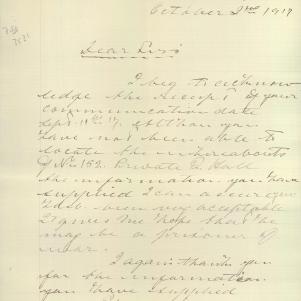 October 2nd 1917
Dear Sirs
I beg to acknow
ledge the receipt of your
communication date
Sept 11th 17. Although you
have not been able to
locate the whereabouts
of No 152. Private E. Hall
the information you have
supplied I can assure you
has been very acceptable
It gives me hope that he
may be a prisoner of
war.
I again thank you
for the information
you have supplied